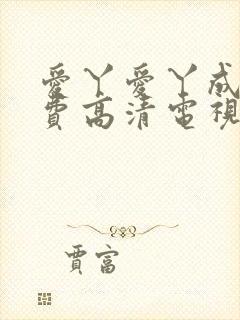 愛丫愛丫成
費高清電視
賈富